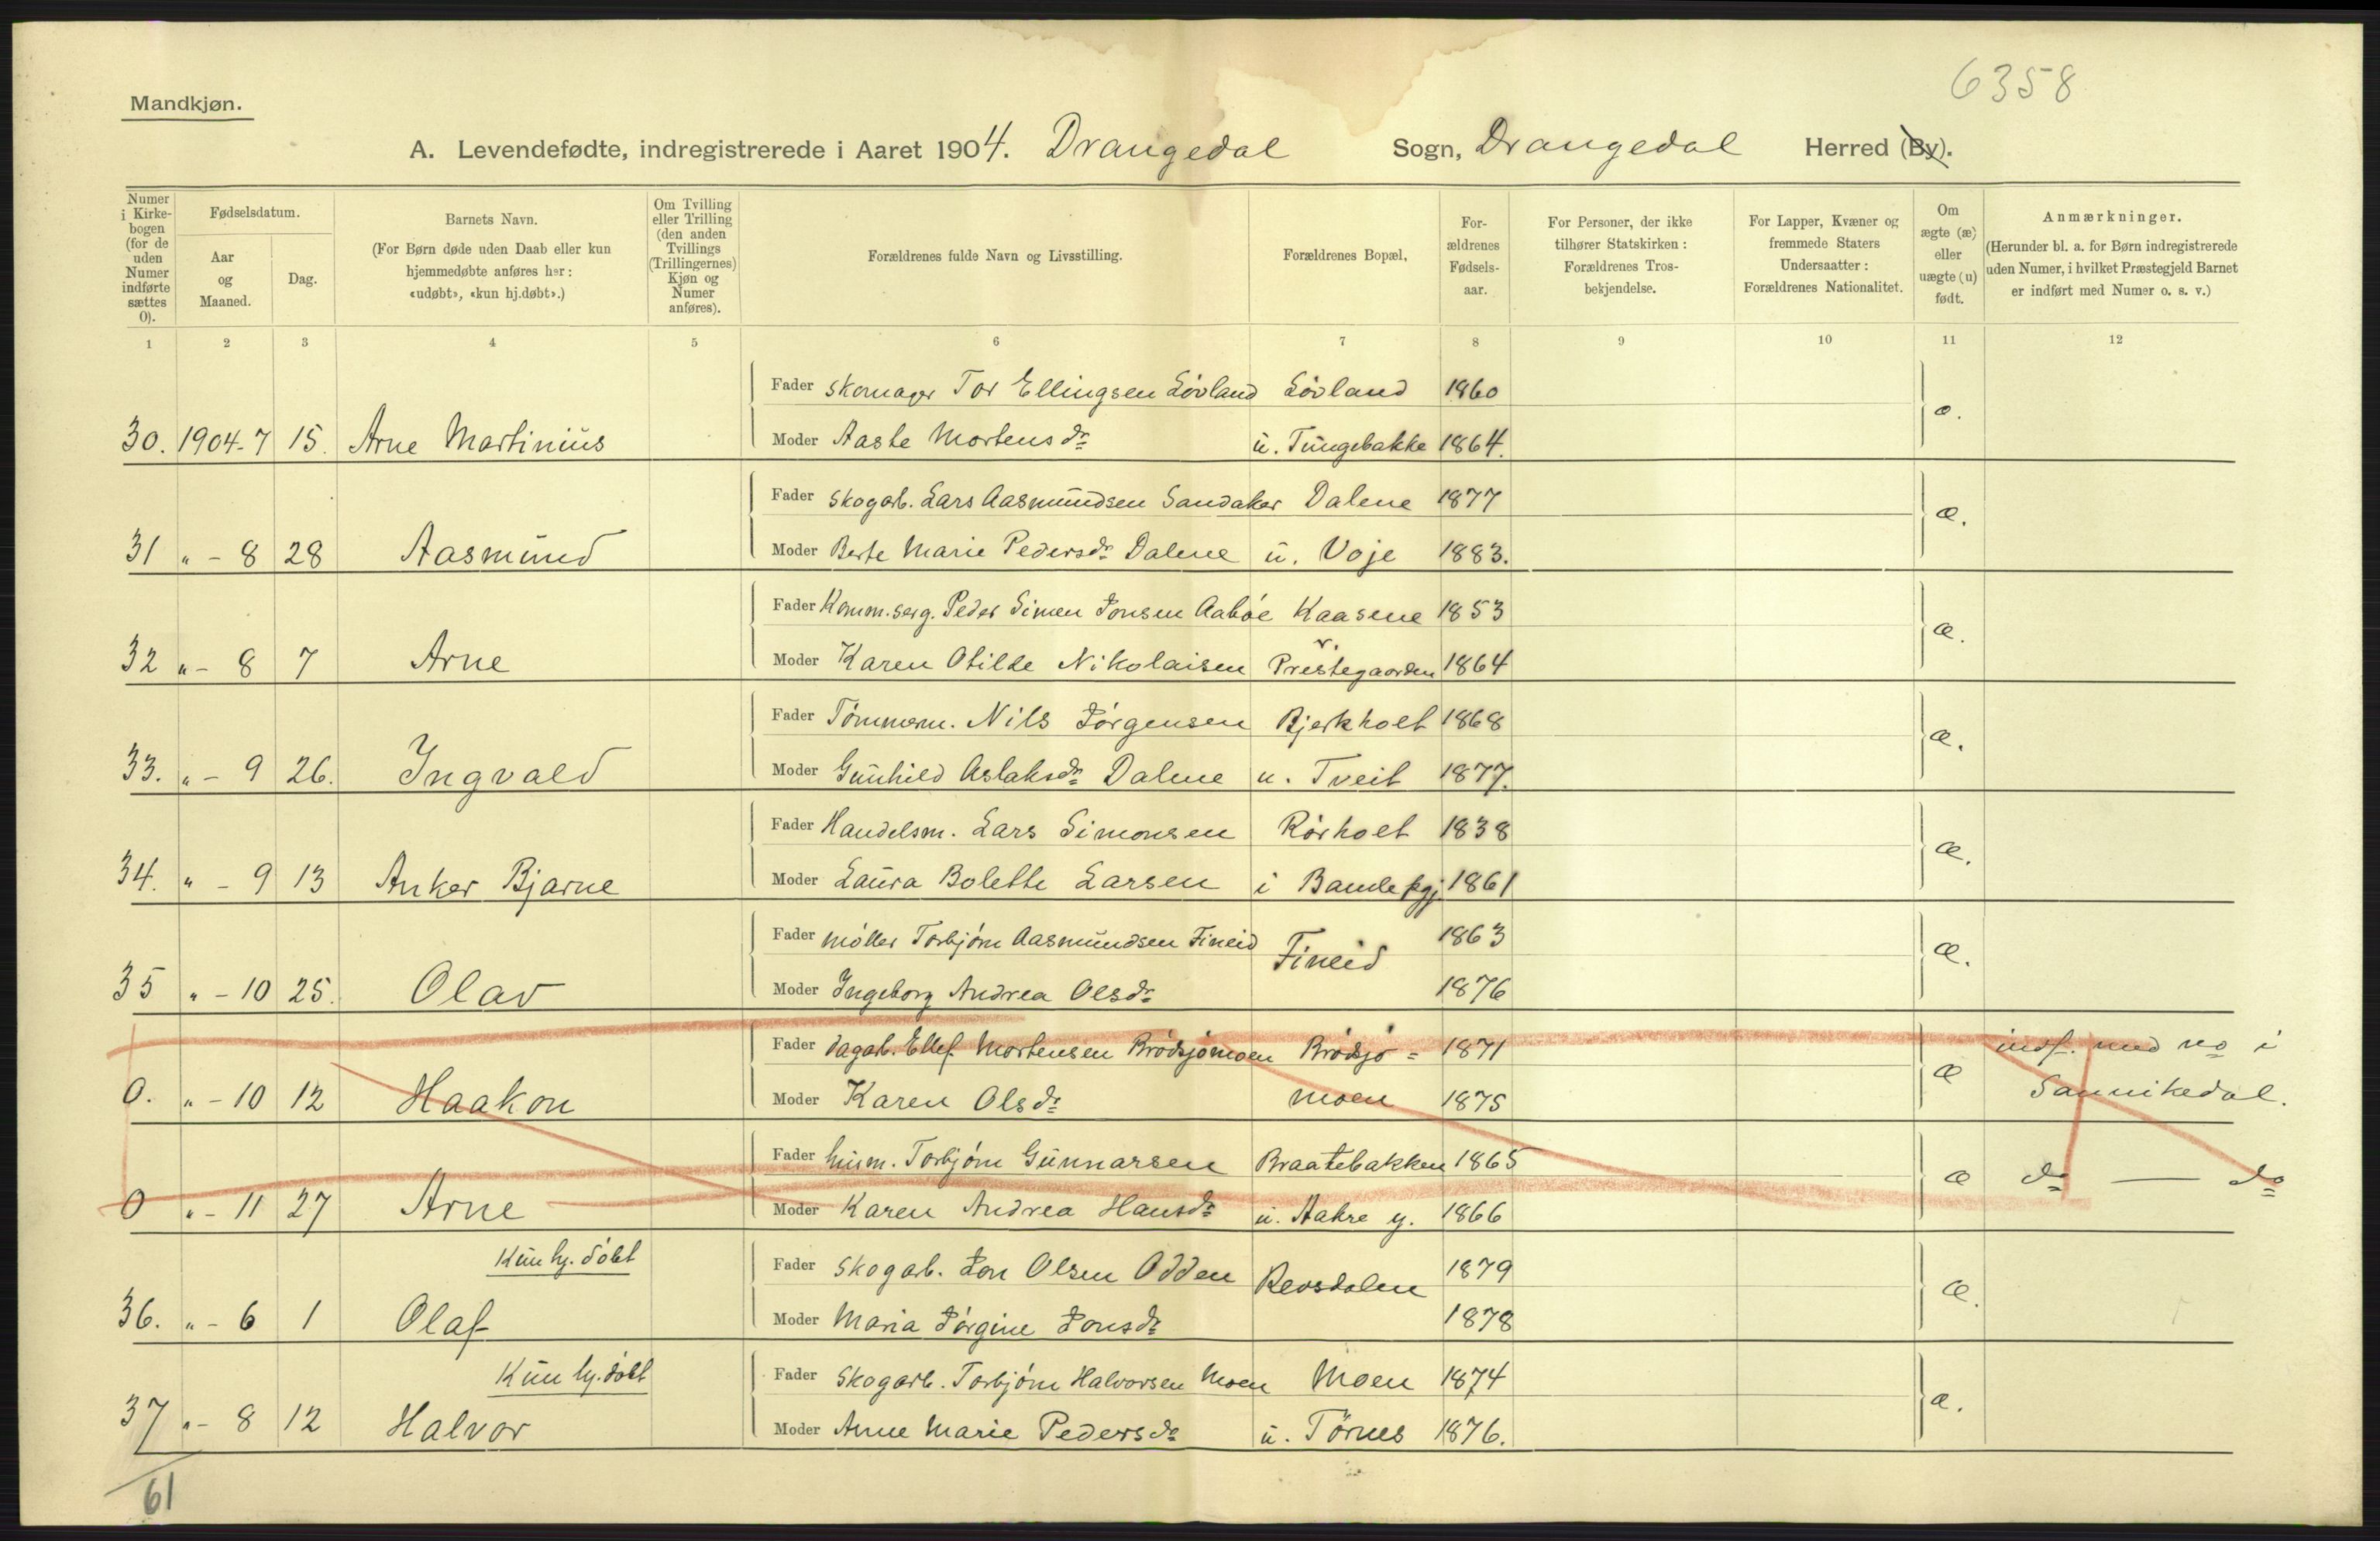 6358
Mandkjøn.
A. Levendefødte, indregistrerede i Aaret 1904. Drangedal Sogn, Drangedal Herred (By).
Numer i Kirke-bogen (for de uden Numer indførte sættes 0).
Fødselsdatum.
Aar og Maaned.
Dag.
Barnets Navn.
(For Børn døde uden Daab eller kun hjemmedøbte anføres her: «udøbt», «kun hj.døbt».)
Om Tvilling eller Trilling (den anden Tvillings (Trillingernes) Kjøn og Numer anføres).
Forældrenes fulde Navn og Livsstilling.
Forældrenes Bopæl,
For-ældrenes Fødsels-aar.
For Personer, der ikke tilhører Statskirken: Forældrenes Tros-bekjendelse.
For Lapper, Kvæner og fremmede Staters Undersaatter: Forældrenes Nationalitet.
Om ægte (æ) eller uægte (u) født.
Anmærkninger.
(Herunder bl. a. for Børn indregistrerede uden Numer, i hvilket Præstegjeld Barnet er indført med Numer o. s. v.)
1 2 3 4 5 6 7 8 9 10 11 12
Fader Skomager Tor Ellingsen Lövland Lövland 1860
30. 1904-7 15. Arne Martinius Moder Aaste Mortensdr u. Tungebakke 1864. æ.
Fader Skogarb. Lars Aasmundsen Sandaker Dalene 1877
31 " - 8 28 Aasmund Moder Berte Marie Pedersdr Dalene u. Voje 1883. æ.
Fader Komm.serg. Peder Simen Jonsen Aaböe Kaasene 1853
32 " - 8 7 Arne Moder Karen Otilde Nikolaisen v. Prestegaarden 1864 æ.
Fader Tömmerm. Nils Jörgensen Bjerkholt 1868
33. " - 9 26. Ingvald Moder Gunhild Aslaksdr Dalene u. Tveit 1877. æ.
Fader Handelsm. Lars Simonsen Rörholt 1838
34. " - 9 13 Anker Bjarne Moder Laura Bolette Larsen i Bamle pgj 1861 æ.
Fader Möller Torbjörn Aasmundsen Fineid Fineid 1863
35 " - 10 25. Olav Moder Ingeborg Andrea Olsdr 1876 æ.
Fader Dagarb. Ellef Mortensen Brödsjömoen Brödsjö= 1871 indf. med no i
0. " - 10 12 Haakon Moder Karen Olsdr moen 1875 æ Sannikedal.
Fader Husm. Torbjörn Gunnarsen Braatebakken 1865
0 " - 11 27 Arne Moder Karen Andrea Hansdr u. Aakre y. 1866 æ do — do
Kun hj. döbt Fader Skogarb. Jon Olsen Odden Revsdalen 1879
36. " - 6 1 Olaf Moder Maria Jörgine Jonsdr 1878 æ.
Kun hj. döbt Fader Skogarb. Torbjörn Halvorsen Moen Moen 1874
37 " - 8 12 Halvor Moder Anne Marie Pedersdr u. Törnes 1876. æ.
61